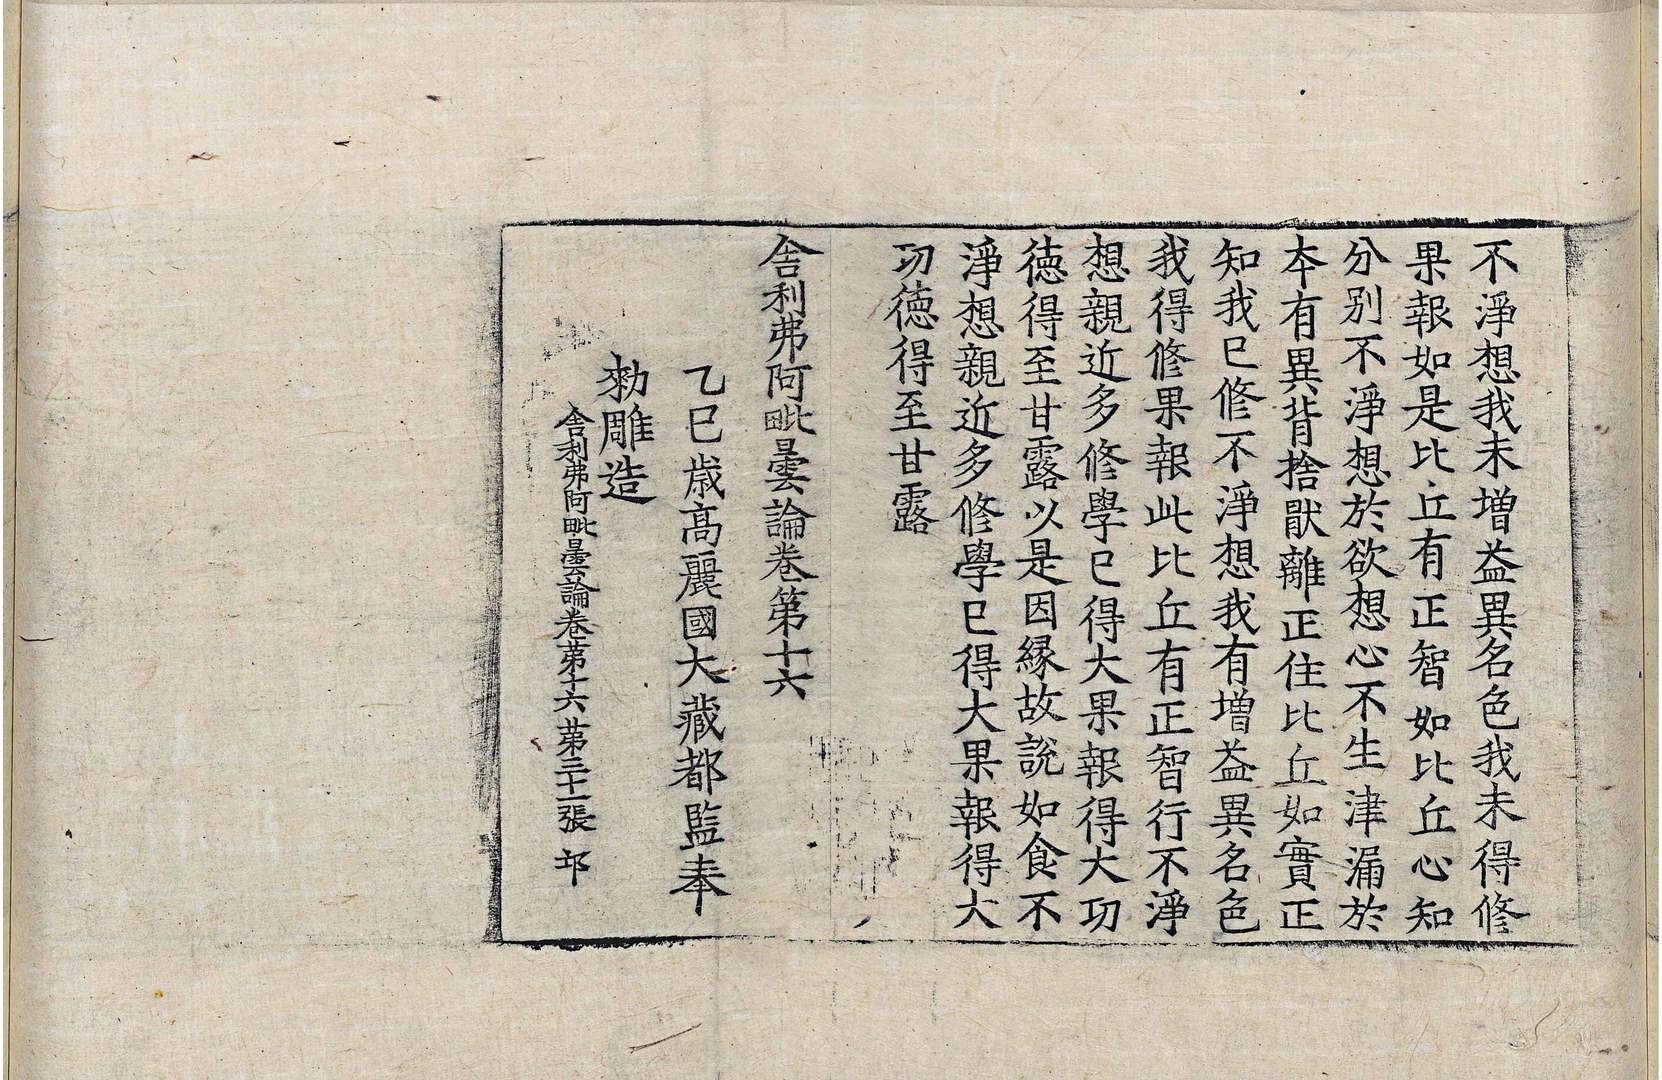 不淨想我未增益異名色我未得修
果報如是比丘有正智如比丘心知
分别不淨想於欲想心不生津漏於
夲有異背捨猒離正住比丘如實正
知我已修不淨想我有增益異名色
我得修果報此比丘有正智行不淨
想親近多修學已得大果報得大功
德得至甘露以是因縁故說如食不
淨想親近多修學已得大果報得大
功德得至甘露
舎利弗阿毗曇論卷第十六
乙巳歳髙麗國大藏都監奉
勑雕造
舎利弗阿毗曇論卷第十六 第三十一張 邙